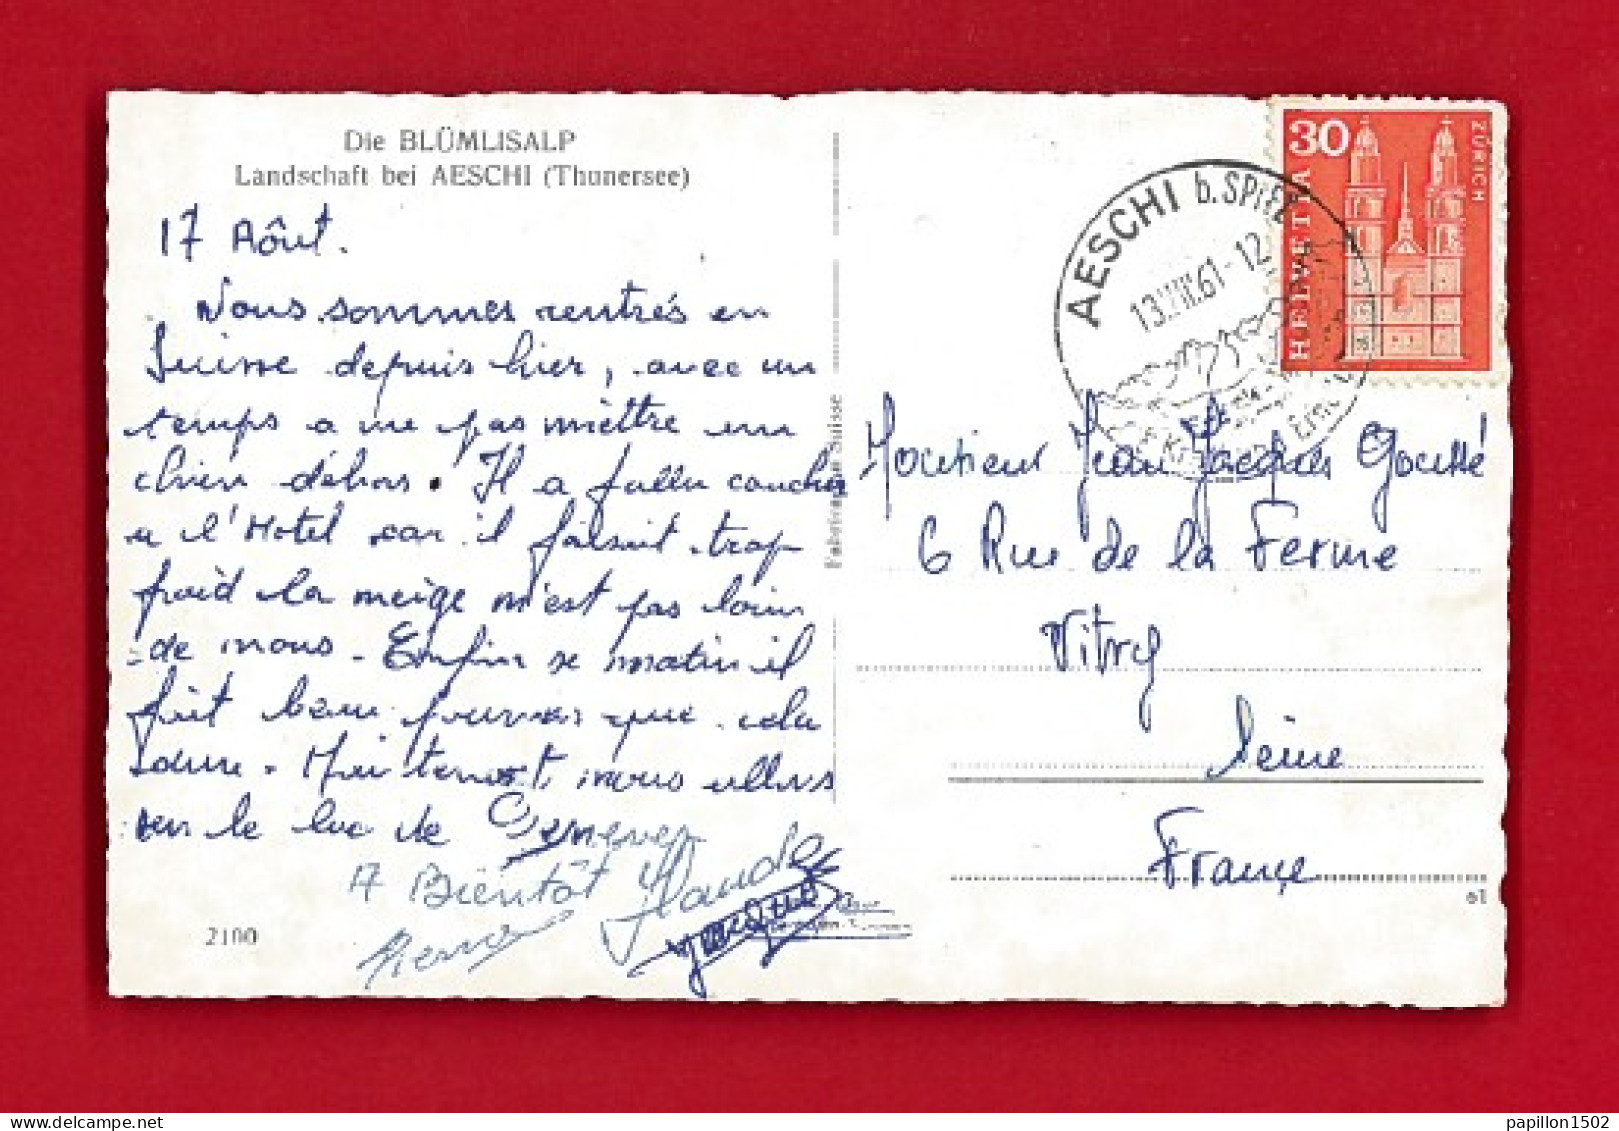 Die BLÜMLISALP
Landschaft bei AESCHI (Thunersee)
17 Aôut.
Nous sommes rentrés en
Suisse depuis hier, avec un
temps a ne pas mèttre un
chien déhors. Il a fallu coucher
a l'Hotel car il faisait trop
froid la neige n'est pas loin
de nous. Enfin se matin il
fait beau pourvus que cela
dure. Maintenant, nous allons
sur le lac de Geneve
A Bientôt Claude
Pierre Jacques
2100
Fabrication Suisse
AESCHI b. SPIEZ
13.VIII.61-12
30
HELVETIA
ZÜRICH
Monsieur Jean Jacques Goussé
6 Rue de la Ferme
Vitry
Seine
France
61
delcampe.net
papillon1502